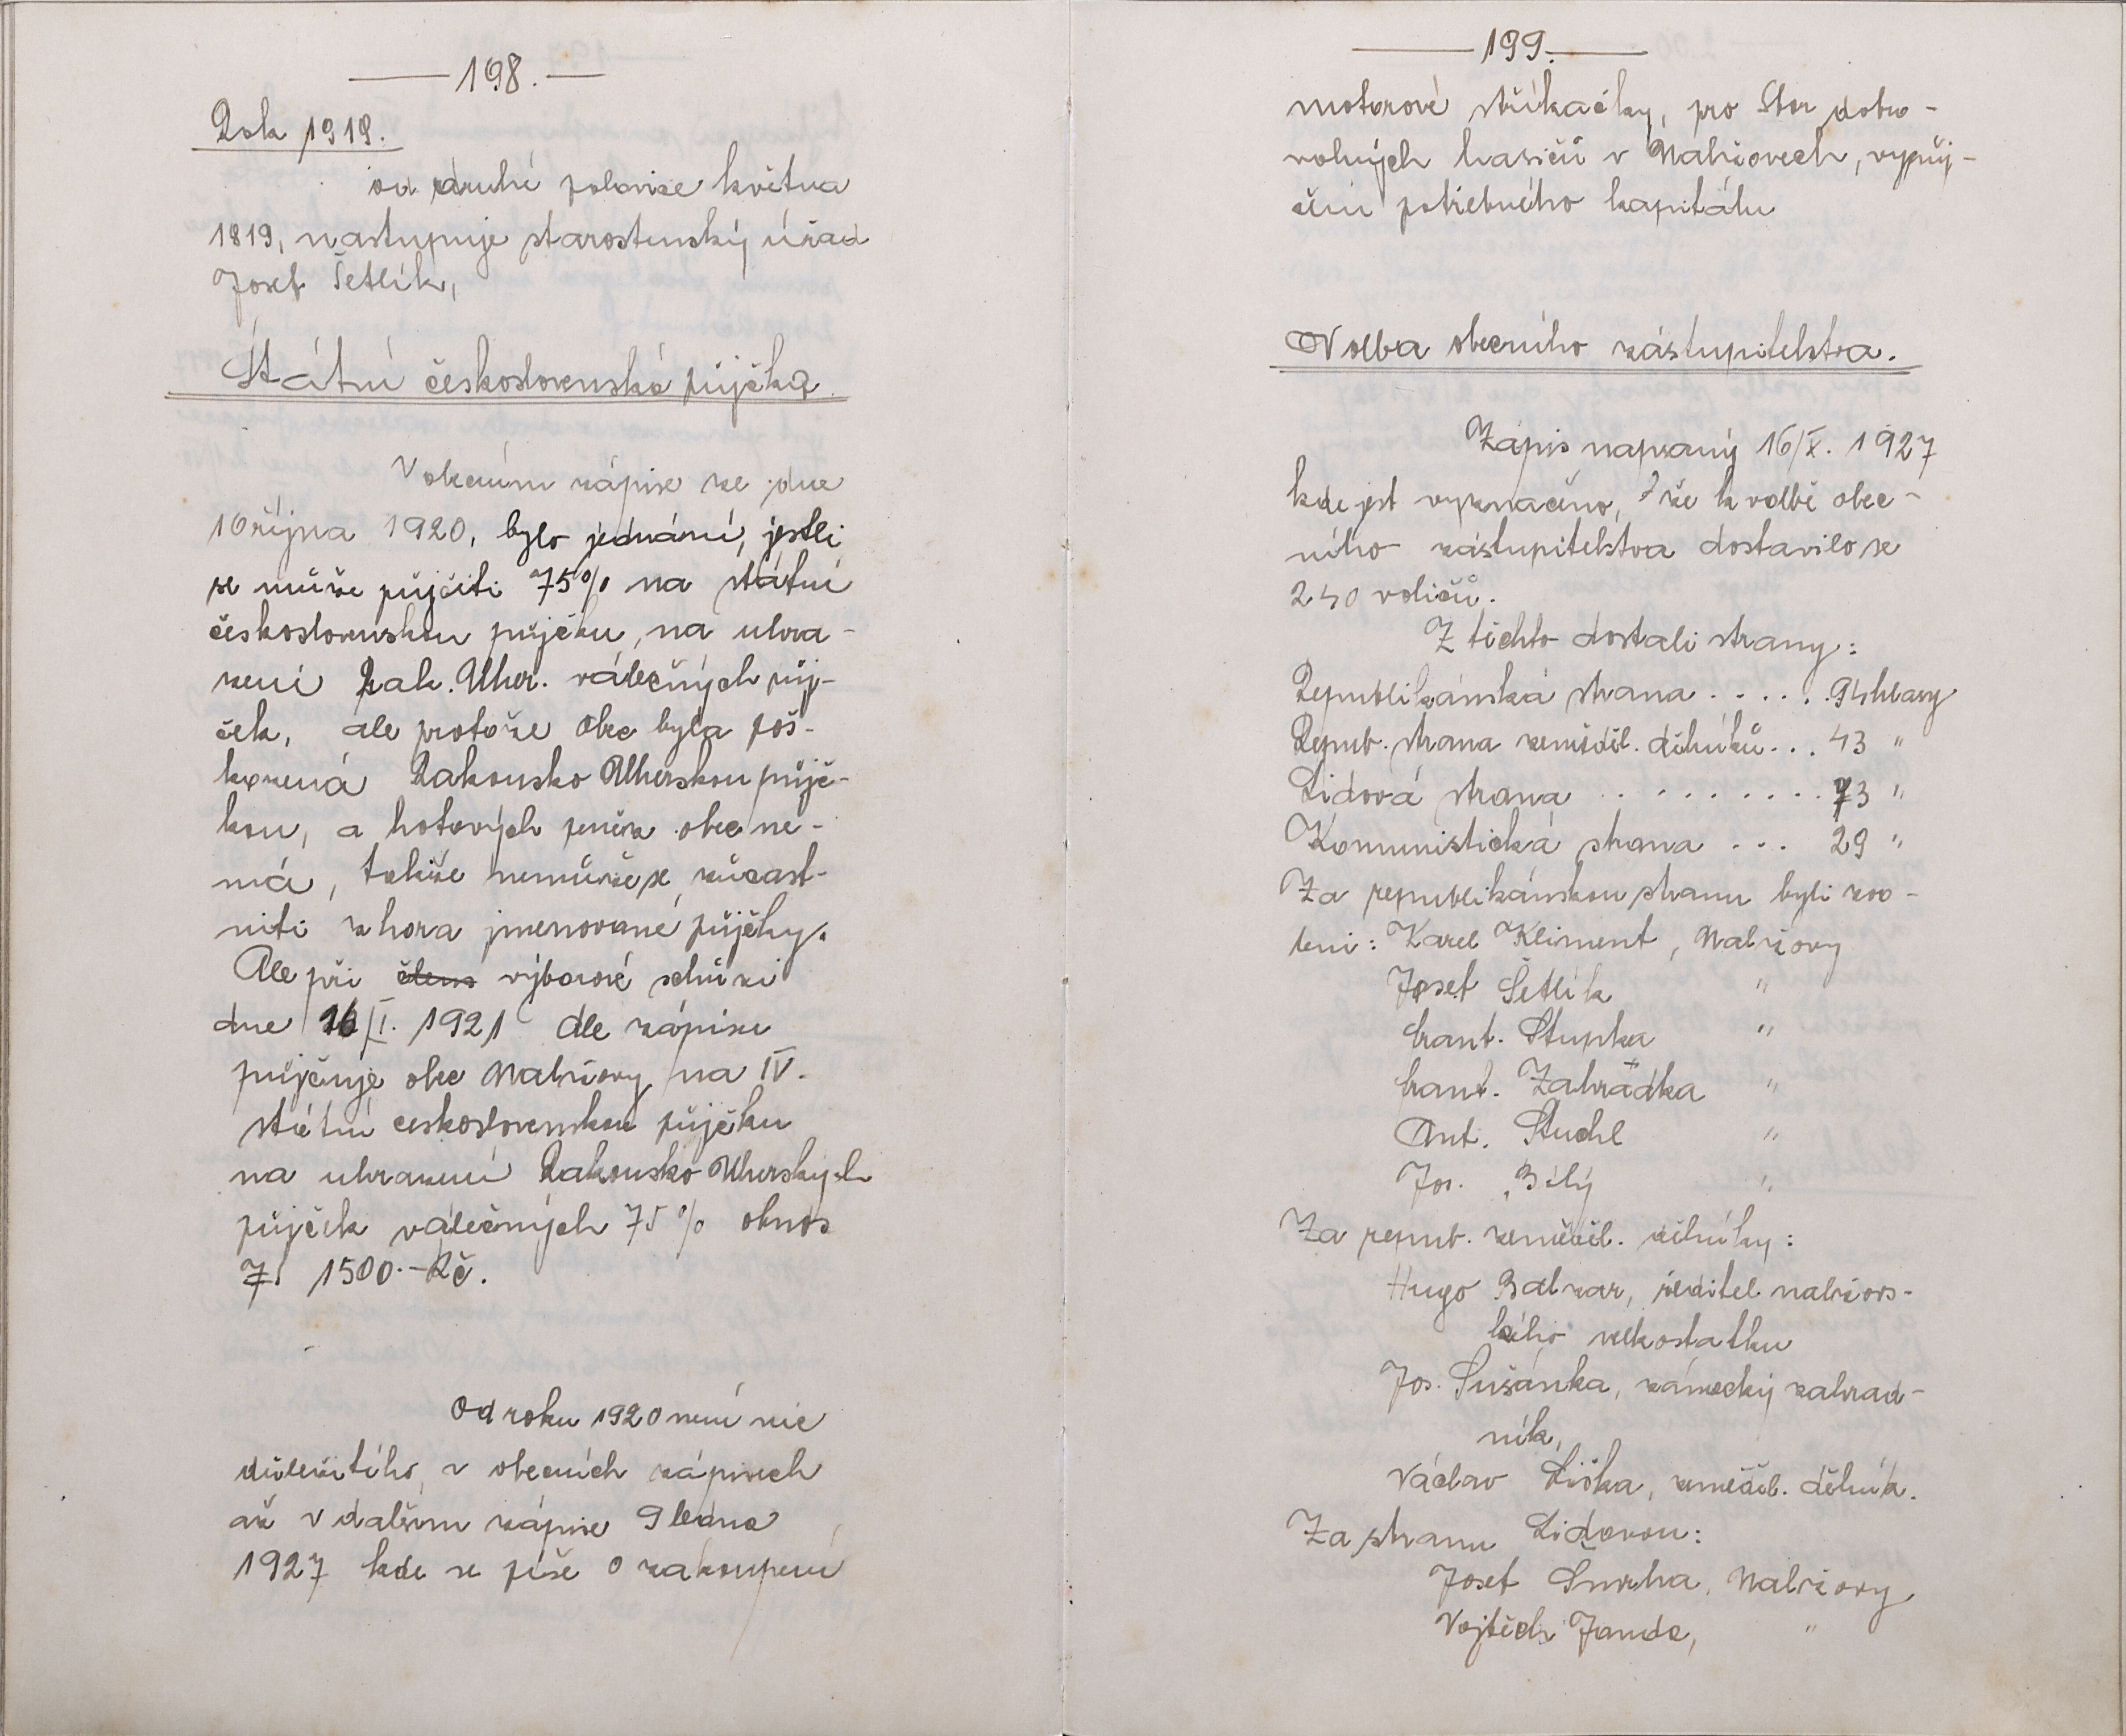 198.
Rok 1919.
od druhé polovice května
1819, nastupuje starostenský úřad
Josef Šetlík,
Státní československá půjčka.
V obecním zápise ze dne
10 října 1920, bylo jednání, jestli
se může půjčiti 75% na státní
československou půjčku, na uhra-
zení Rak. Uher. válečných půj-
ček, ale protože obec byla poš-
kozená Rakousko Uherskou půjč-
kou, a hotových peněz obec ne-
má, takže nemůže se zúčast-
niti z hora jmenované půjčky.
Ale při výborové schůzi
dne 16/I. 1921 dle zápisu
půjčuje obec Nalžovy na IV.
státní československou půjčku
na uhrazení Rakousko Uherských
půjček válečných 75% obnos
7. 1500.-Kč.
Od roku 1920 není nic
důležitého, v obecních zápisech
až v dalším zápise 9 ledna
1927 kde se píše o zakoupení
199.
motorové stříkačky, pro Sbor dobro-
volných hasičů v Nalžovech, vypůj-
čení potřebného kapitálu
Volba obecního zástupitelstva.
Zápis napsaný 16/X. 1927
kde jest vyznačeno, že k volbě obec-
ního zástupitelstva dostavilo se
240 voličů.
Z těchto dostali strany:
Republikánská strana . . . . . 94 hlasy
Repub. strana zeměděl. dělníků . . . 43 "
Lidová strana . . . . . . . . . . 73 "
Komunistická strana . . . 29 "
Za republikánskou stranu byli zvo-
leni: Karel Kliment, Nalžovy
Josef Šetlík "
Frant. Stupka "
Frant. Zahrádka "
Ant. Stuchl "
Jos. Bílý "
Za repub. zeměděl. dělníky:
Hugo Balzar, ředitel nalžovs-
kého velkostatku
Jos. Sušánka, zámecký zahrad-
ník,
Václav Liška, zeměděl. dělník.
Za stranu Lidovou:
Josef Smrha, Nalžovy
Vojtěch Janda, "